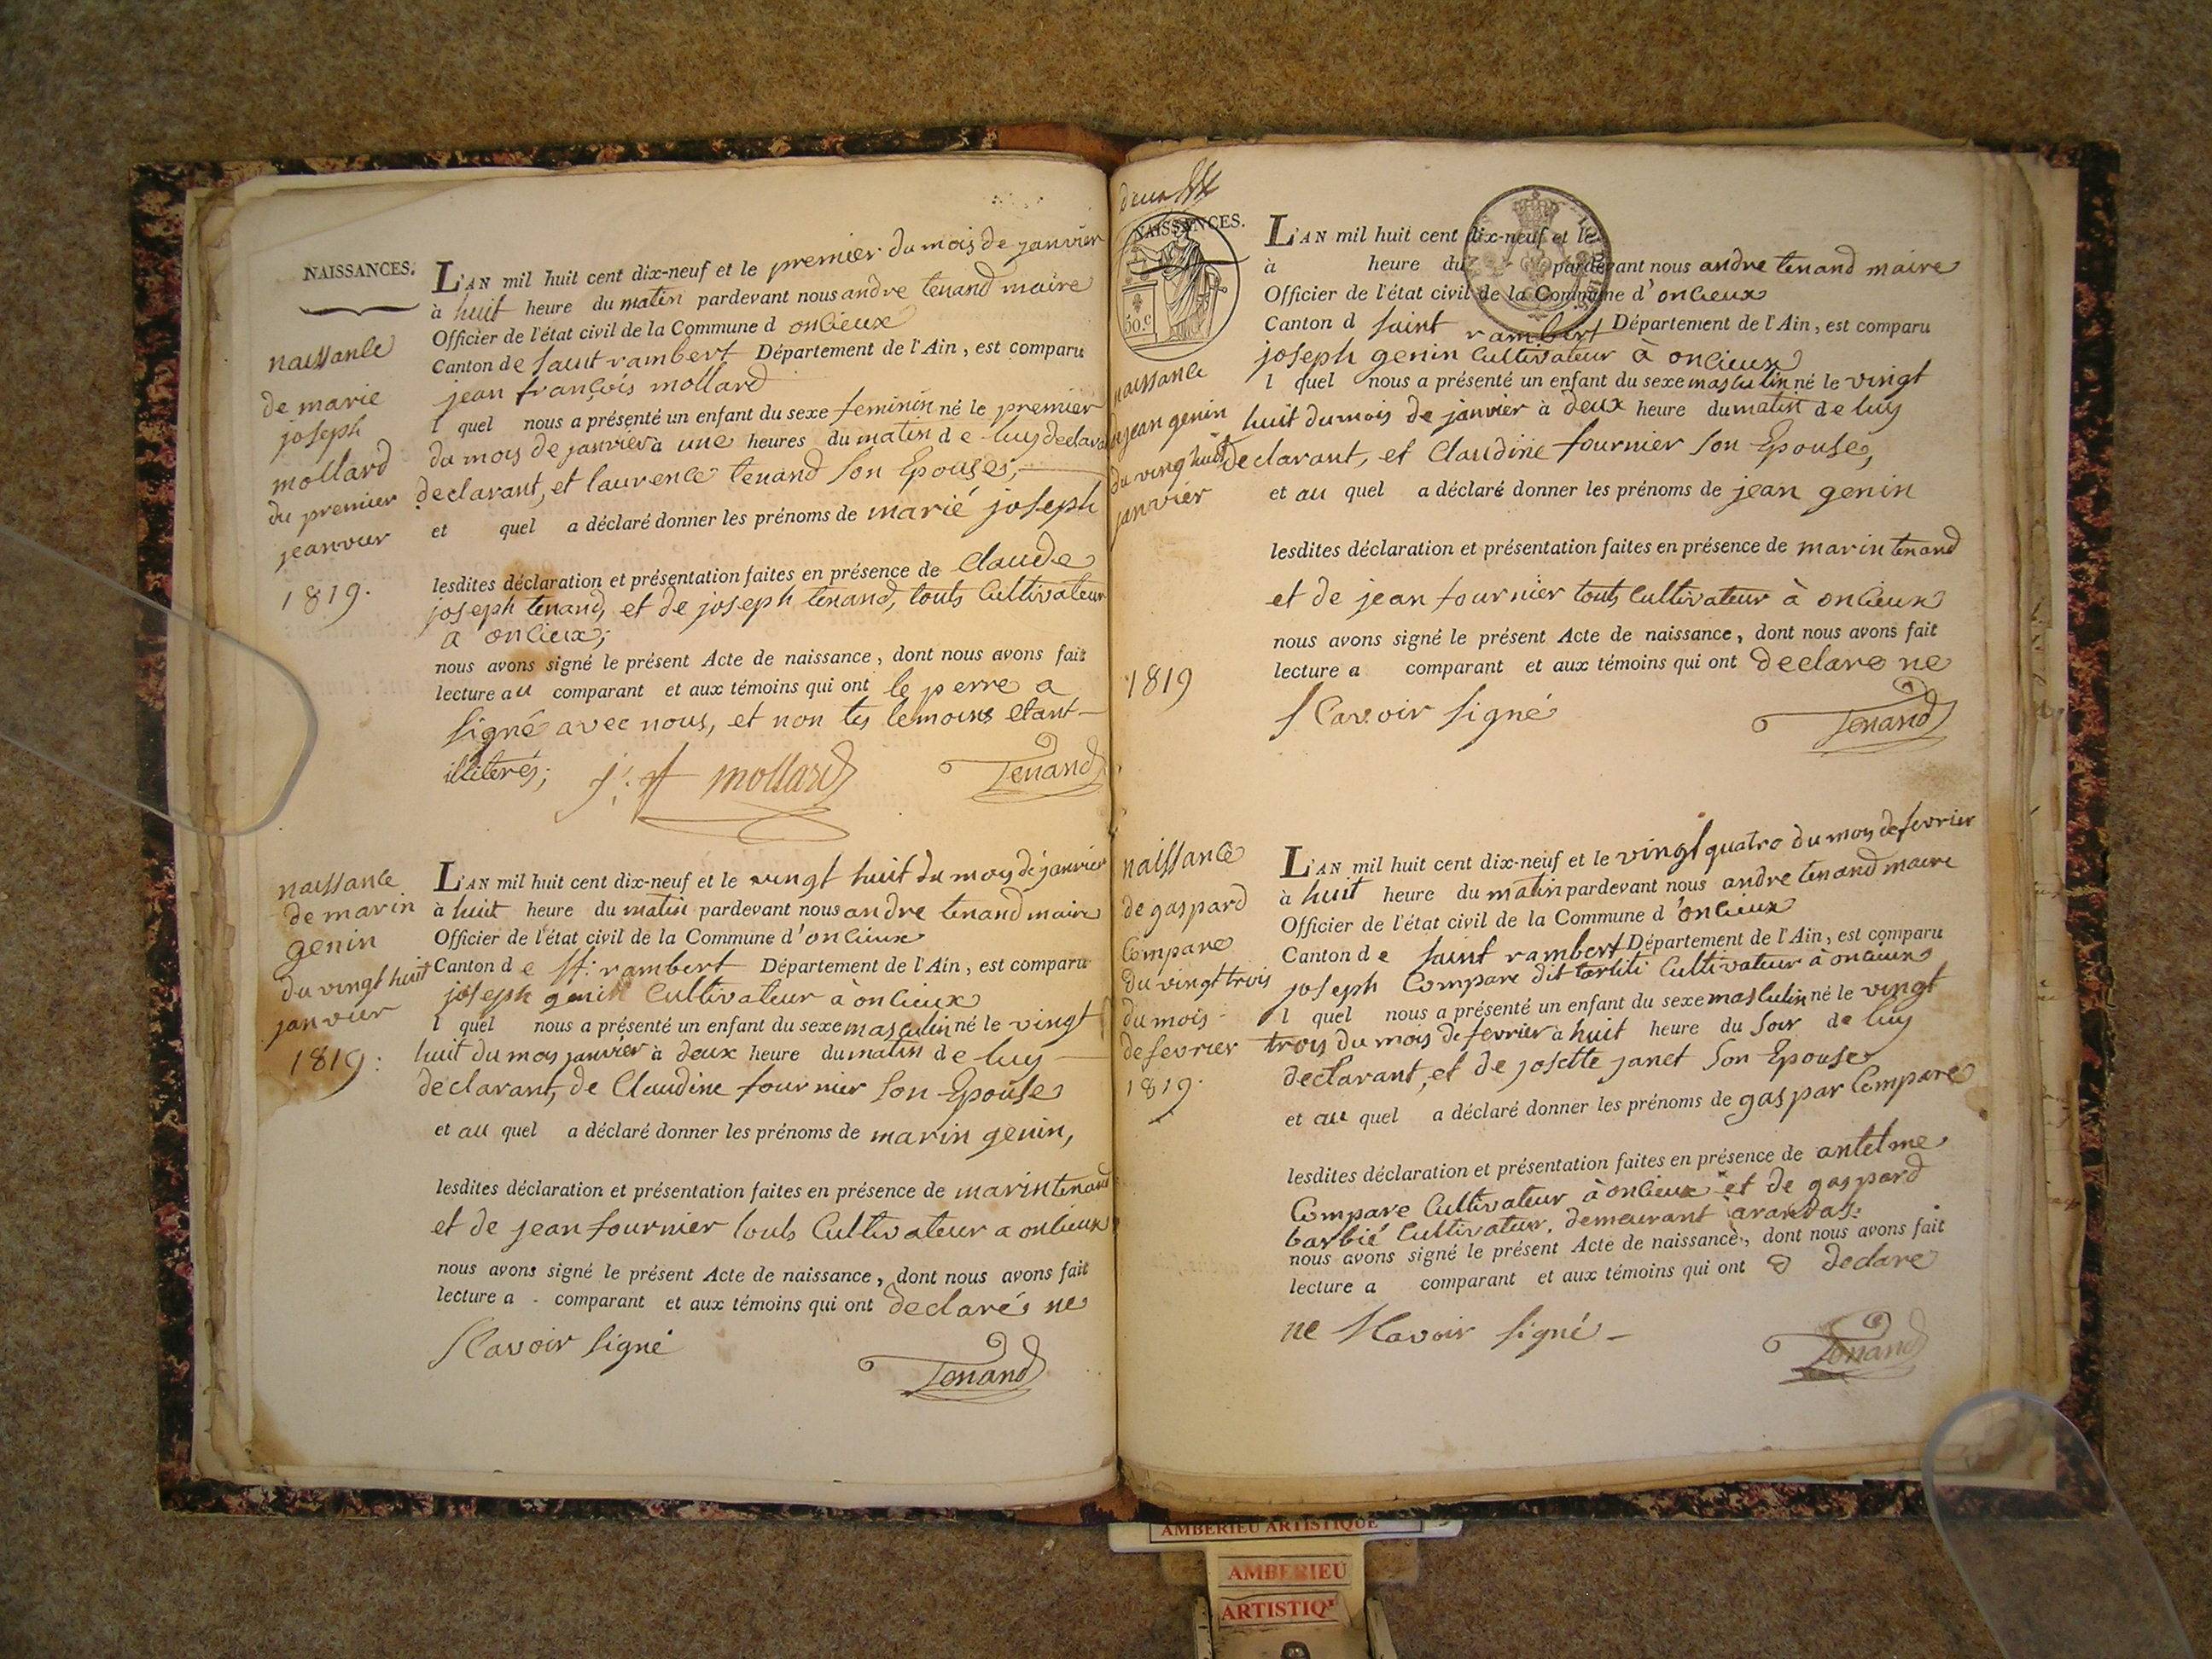 NAISSANCES.
naissance
de marie
joseph
mollard
du premier
jeanvier
1819.
L'AN mil huit cent dix-neuf et le premier du mois de janvier
à huit heure du matin pardevant nous andre tenand maire
Officier de l'état civil de la Commune d onlieux
Canton de saint rambert Département de l'Ain, est comparu
jean françois mollard
l quel nous a présenté un enfant du sexe feminin né le premier
du mois de janvier à une heures du matin de luy declara
declarant, et laurence tenand son Epouses,
et quel a déclaré donner les prénoms de marié joseph
lesdites déclaration et présentation faites en présence de Claude
joseph tenand, et de joseph tenand, touts Cultivateur
a onlieux;
nous avons signé le présent Acte de naissance, dont nous avons fait
lecture au comparant et aux témoins qui ont le perre a
signé avec nous, et non les temoins etant
illiterés;
j. f mollard
Tenand
naissance
de marin
genin
du vingt huit
janvier
1819:
L'AN mil huit cent dix-neuf et le vingt huit du mois de janvier
à huit heure du matin pardevant nous andre tenand maire
Officier de l'état civil de la Commune d'onlieux
Canton de St. rambert Département de l'Ain, est comparu
joseph genin Cultivateur à onlieux
l quel nous a présenté un enfant du sexe masculin né le vingt
huit du mois janvier à deux heure du matin de luy
declarant, de Claudine fournier son Epouse
et au quel a déclaré donner les prénoms de marin genin,
lesdites déclaration et présentation faites en présence de marin tenand
et de jean fournier touts Cultivateur a onlieux
nous avons signé le présent Acte de naissance, dont nous avons fait
lecture a comparant et aux témoins qui ont declarés ne
scavoir signé
Tenand
deux
NAISSANCES.
50.c
naissance
jean genin
du ving huit
janvier
1819
L'AN mil huit cent dix-neuf et le
à heure du pardevant nous andre tenand maire
Officier de l'état civil de la Commune d'onlieux
Canton d saint rambert Département de l'Ain, est comparu
joseph genin Cultivateur à onlieux
l quel nous a présenté un enfant du sexe masculin né le vingt
huit du mois de janvier à deux heure du matin de luy
declarant, et Claudine fournier son Epouse,
et au quel a déclaré donner les prénoms de jean genin
lesdites déclaration et présentation faites en présence de marin tenand
et de jean fournier touts Cultivateur à onlieux
nous avons signé le présent Acte de naissance, dont nous avons fait
lecture a comparant et aux témoins qui ont declare ne
scavoir signé
Tenand
naissance
de gaspard
Compare
du vingt trois
du mois
de fevrier
1819.
L'AN mil huit cent dix-neuf et le vingt quatre du mois de fevrier
à huit heure du matin pardevant nous andre tenand maire
Officier de l'état civil de la Commune d'onlieux
Canton de saint rambert Département de l'Ain, est comparu
joseph Compare dit Cultivateur à onlieux
l quel nous a présenté un enfant du sexe masculin né le vingt
trois du mois de fevrier à huit heure du soir de luy
declarant, et de josette janet son Epouse
et au quel a déclaré donner les prénoms de gaspar Compare
lesdites déclaration et présentation faites en présence de antelme
Compare Cultivateur à onlieux et de gaspard
barbié Cultivateur, demeurant arandas:
nous avons signé le présent Acte de naissance, dont nous avons fait
lecture a comparant et aux témoins qui ont declare
ne scavoir signé
Tenand
AMBERIEU ARTISTIQUE
AMBERIEU
ARTISTIQ